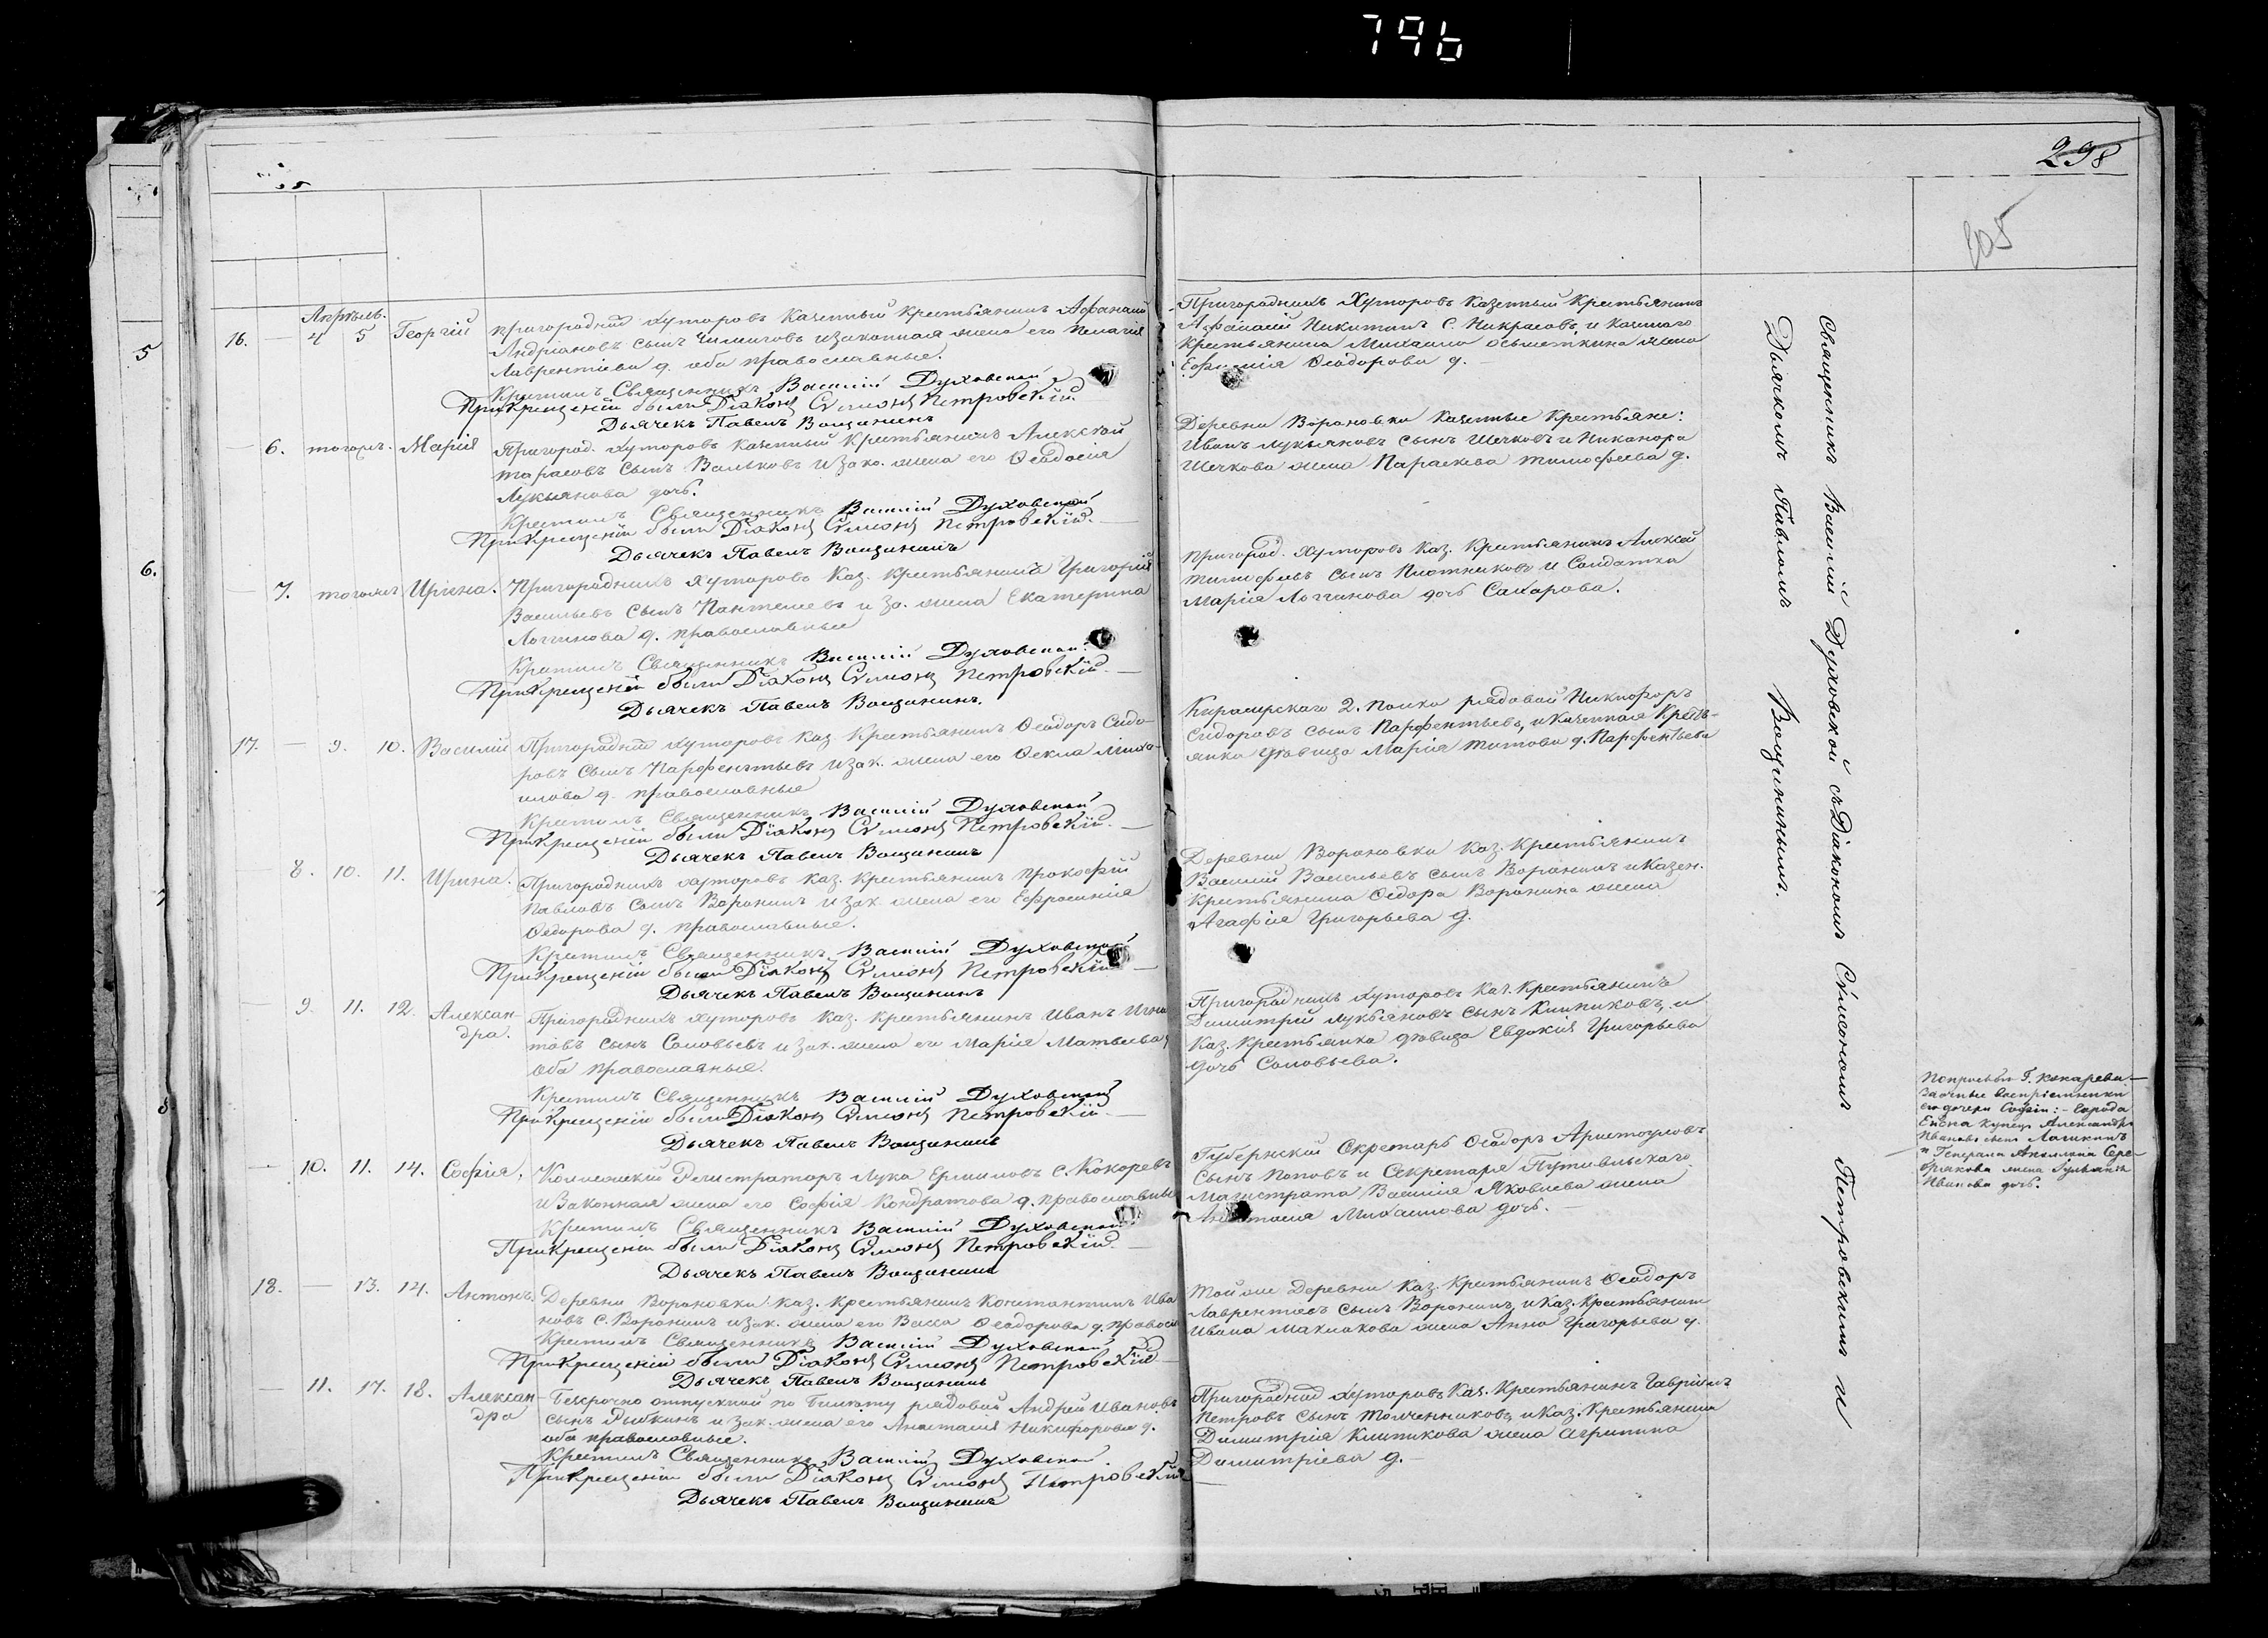 796
298
205
5
6.
7
8
Апрѣль.
16. — 4 5 Георгій
Пригородныхъ Хуторовъ Казенный Крестьянинъ Афанасій
Андріановъ сынъ и законная жена его Пелагія
Лаврентіева д. оба православные.
Крестилъ Священникъ Василій Духовской
При крещеніи были Діаконъ Сѵмеонъ Петровскій.
Дьячекъ Павелъ Вощининъ
Пригородныхъ Хуторовъ Казенный Крестьянинъ
Афанасій Никитинъ С. Некрасовъ, и Казеннаго
Крестьянина Михаила жена
Ефимія Ѳеодорова д. —
— 6. тогожъ. Марія
Пригород. Хуторовъ Казенный Крестьянинъ Алексѣй
Тарасовъ сынъ Вальковъ и зако. жена его Ѳеодосія
Лукьянова дочь.
Крестилъ Священникъ Василій Духовской
При крещеніи были Діаконъ Сѵмеонъ Петровскій. —
Дьячекъ Павелъ Вощининъ
Деревни Вороновки Казенные Крестьяне:
Иванъ Лукьяновъ сынъ Шечковъ и Никанора
Шечкова жена Параскева Тимофеева д.
— 7. тогожъ Ирина.
Пригородныхъ Хуторовъ Каз. Крестьянинъ Григорій
Васильевъ сынъ Пантелеевъ и за. жена Екатерина
Логгинова д. православные
Крестилъ Священникъ Василій Духовской.
При крещеніи были Діаконъ Сѵмеонъ Петровскій. —
Дьячекъ Павелъ Вощининъ.
Пригород. Хуторовъ Каз. Крестьянинъ Алексѣй
Тимофѣевъ сынъ Плотниковъ и Солдатка
Марія Логгинова дочь Сахарова.
17. — 9. 10. Василій
Пригородныхъ Хуторовъ Каз. Крестьянинъ Ѳеодоръ Сидо-
ровъ сынъ Парфентьевъ и зак. жена его Ѳекла Миха-
илова д. православные
Крестилъ Священникъ Василій Духовской
При крещеніи были Діаконъ Сѵмеонъ Петровскій. —
Дьячекъ Павелъ Вощининъ
Кирасирскаго 2. полка рядовой Никифоръ
Сидоровъ сынъ Парфентьевъ, и Казенная Кресть-
янка дѣвица Марія Титова д. Парфентьева
8. 10. 11. Ирина.
Пригородныхъ Хуторовъ Каз. Крестьянинъ Прокофій
Павловъ сынъ Воронинъ и зак. жена его Ефросинія
Ѳедорова д. православные.
Крестилъ Священникъ Василій Духовской
При крещеніи были Діаконъ Сѵмеонъ Петровскій —
Дьячекъ Павелъ Вощининъ
Деревни Вороновки Каз. Крестьянинъ
Василій Васильевъ сынъ Воронинъ и Казен.
Крестьянина Ѳедора Воронина жена
Агафія Григорьева д.
9. 11. 12. Алексан-
дра.
Пригородныхъ Хуторовъ Каз. Крестьянинъ Иванъ Игна
товъ сынъ Соловьевъ и зак. жена его Марія Матвѣева
оба православные.
Крестилъ Священникъ Василій Духовской
При крещеніи были Діаконъ Сѵмеонъ Петровскій. —
Дьячекъ Павелъ Вощининъ
Пригородныхъ Хуторовъ Каз. Крестьянинъ
Димитрій Лукьяновъ сынъ и
Каз. Крестьянка дѣвица Евдокія Григорьева
дочь Соловьева.
— 10. 11. 14. Софія.
Коллежскій Регистраторъ Лука Ермиловъ С. Кокоревъ
и Законная жена его Софія Кондратова д. православные
Крестилъ Священникъ Василій Духовской
При крещеніи были Діаконъ Сѵмеонъ Петровскій. —
Дьячекъ Павелъ Вощининъ
Губернскій Секретарь Ѳеодоръ
сынъ Поповъ и Секретаря Путивльскаго
Магистрата Василія Яковлева жена
Анастасія Михаилова дочь. —
18. — 13. 14. Антонъ.
Деревни Вороновки Каз. Крестьянинъ Константинъ Ива
новъ С. Воронинъ и зак. жена его Васса Ѳеодорова д. правосл
Крестилъ Священникъ Василій Духовской
При крещеніи были Діаконъ Сѵмеонъ Петровскій —
Дьячекъ Павелъ Вощининъ
Той же Деревни Каз. Крестьянинъ Ѳеодоръ
Лаврентіевъ сынъ Воронинъ, и Каз. Крестьянина
Ивана Маклакова жена Анна Григорьева д.
— 11. 17. 18. Алексан-
дра
Безсрочно отпускной по билету рядовой Андрей Ивановъ
сынъ и зак. жена его Анастасія Никифорова д.
оба православные.
Крестилъ Священникъ Василій Духовской.
При крещеніи были Діаконъ Сѵмеонъ Петровскій —
Дьячекъ Павелъ Вощининъ
Пригородныхъ Хуторовъ Каз. Крестьянинъ Гавріилъ
Петровъ сынъ Толченниковъ и Каз. Крестьянина
Димитрія жена Агрипина
Димитріева д. —
Священникъ Василій Духовской съ Діакономъ Сѵмеономъ Петровскимъ и
Дьячкомъ Павломъ Вощининымъ.
По просьбѣ Г. Кокарева —
заочные воспріемники
его дочери Софіи: — города
купецъ Александръ
Ивановъ сынъ
и Генерала Сере-
брякова жена
Иванова дочь.